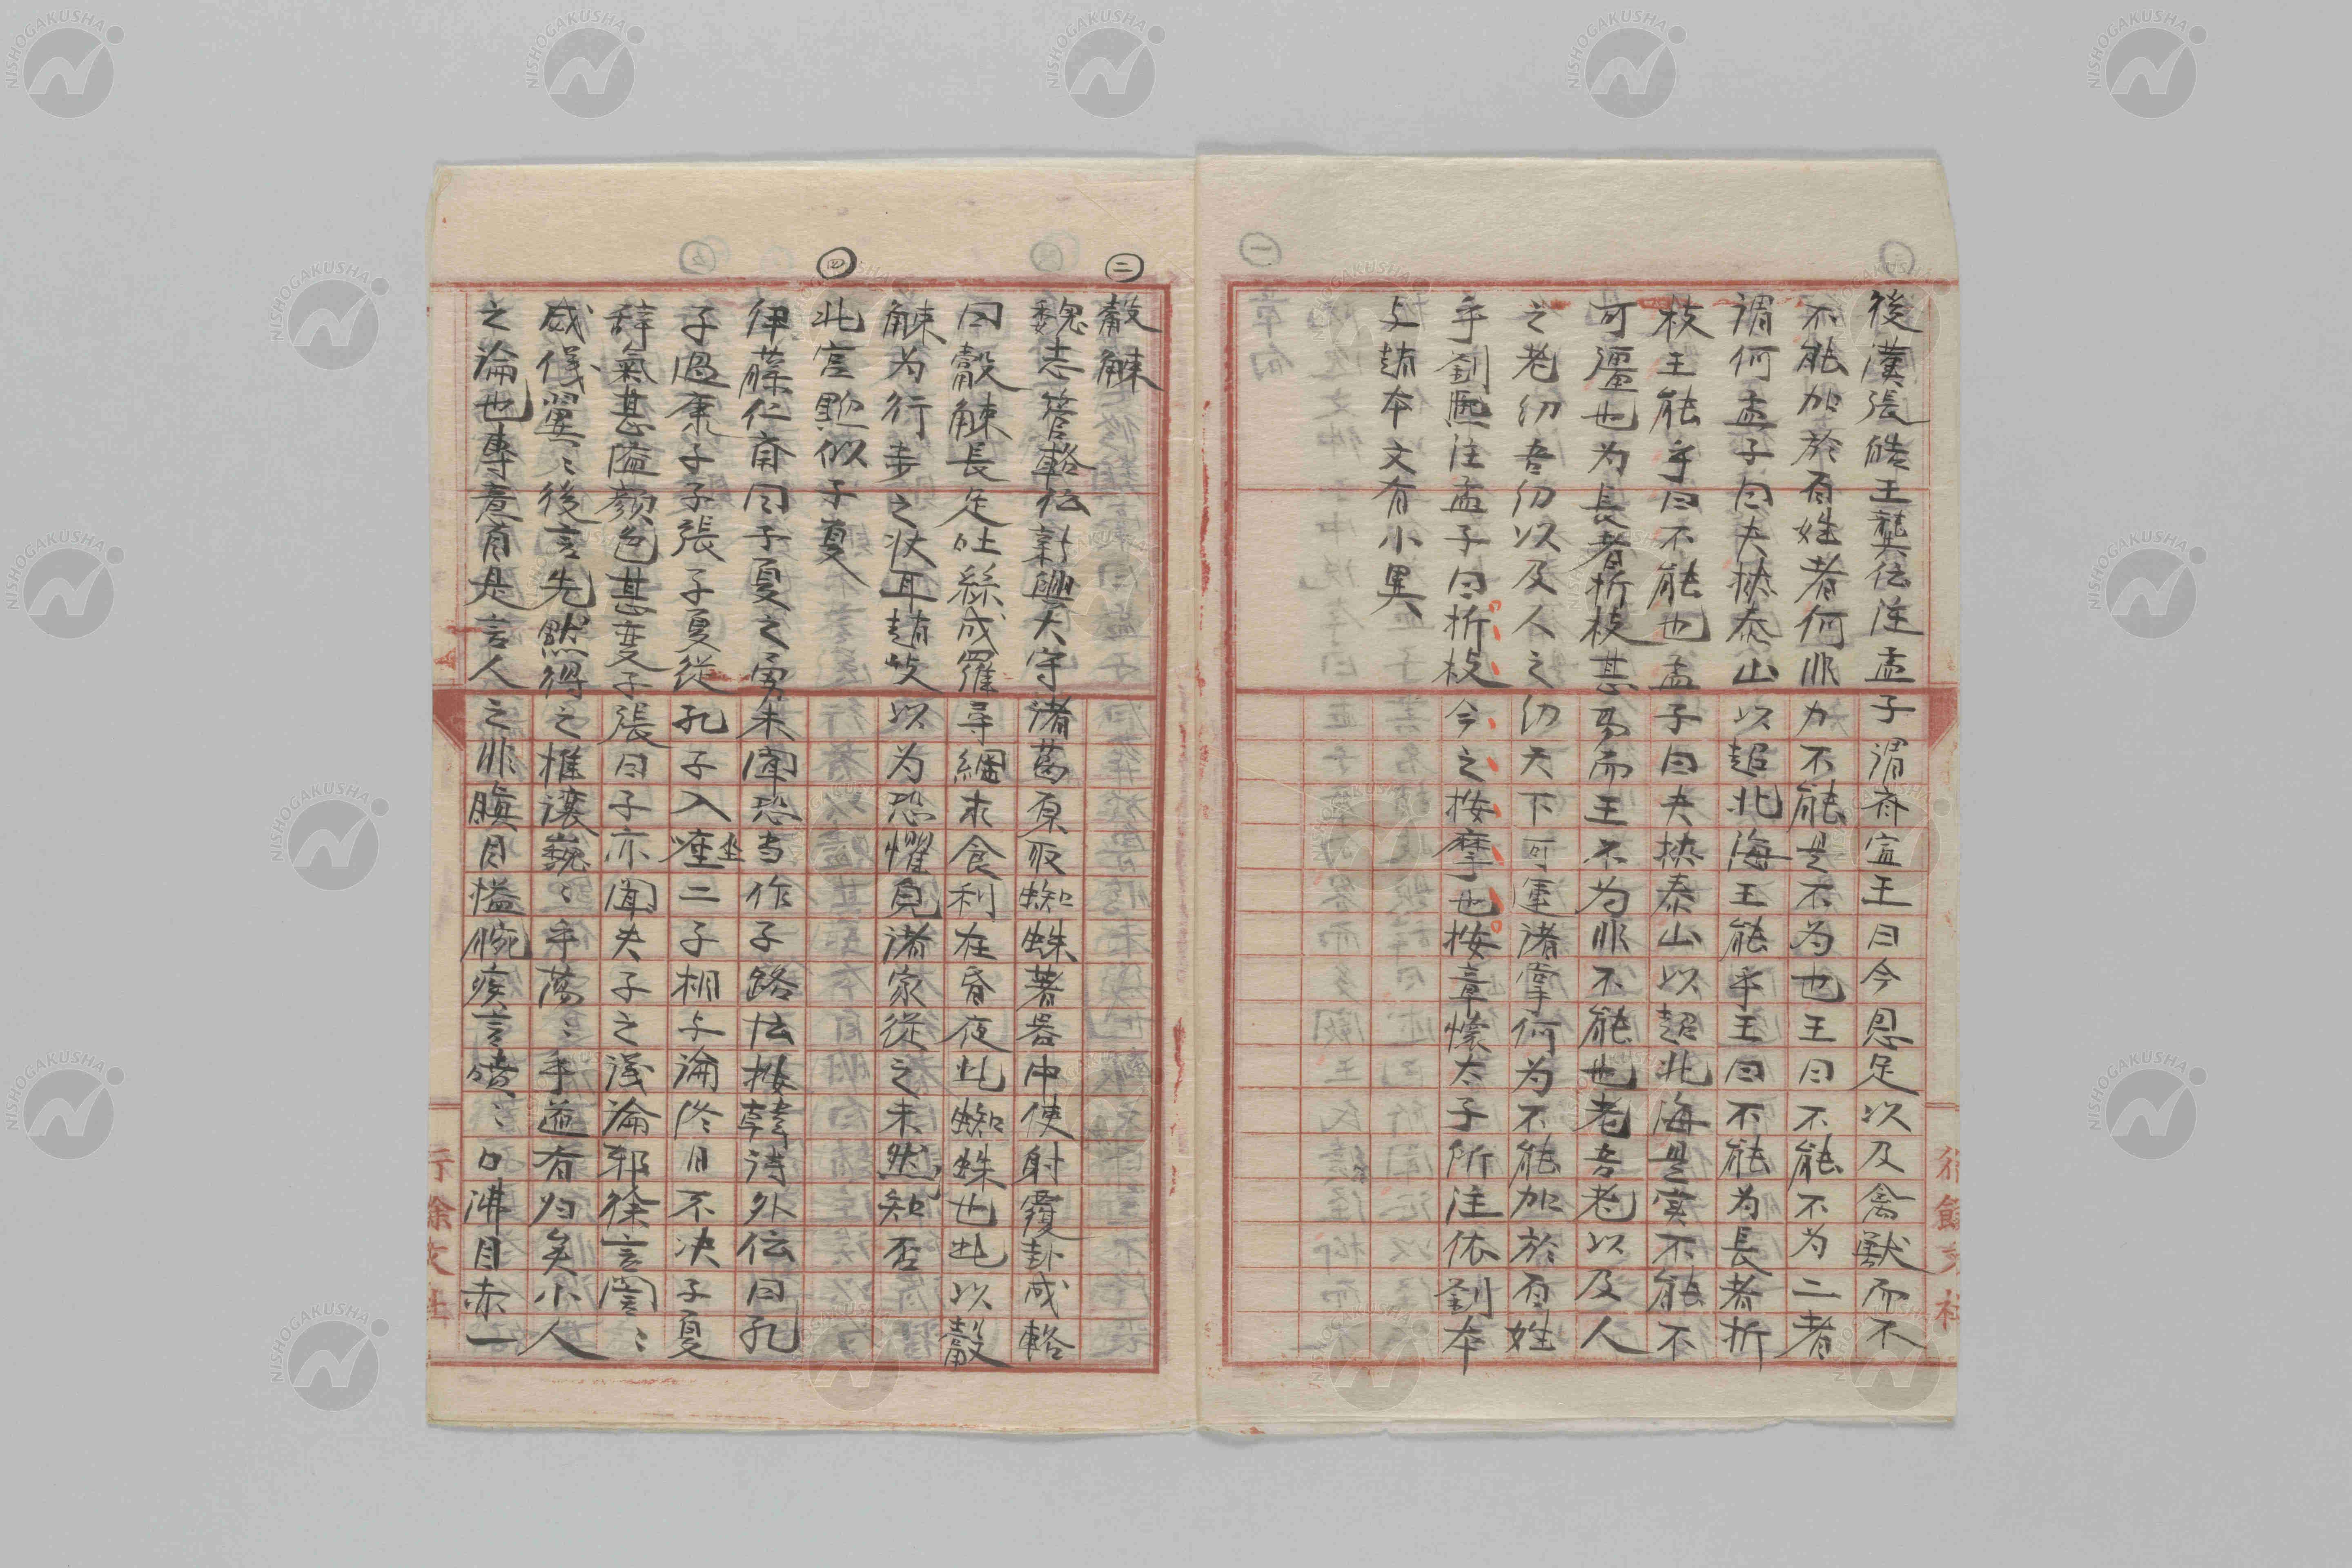 後漢張皓王龔伝注孟子謂斉宣王曰今恩足以及禽獣而不
不能加於百姓者何非力不能是不為也王曰不能不為二者
謂何孟子曰夫挾泰山以超北海王能乎王曰不能為長者折
枝王能乎曰不能也孟子曰夫挾泰山以超北海是実不能不
可彊也為長者折枝甚易而王不為非不能也老吾老以及人
之老幼吾幼以及人之幼天下可運諸掌何為不能加於百姓
乎劉熙注孟子曰折枝今之按摩也按章懐太子所注依劉本
与趙本文有小異
㊁
觳觫
魏志管輅伝新興大守諸葛原取蜘蛛著器中使射覆卦成輅
曰觳觫長足吐絲成羅尋網求食利在昏夜此蜘蛛也此以觳
觫为行步之状耳趙岐以为恐懼皃諸家従之未然知否
㊃
北宮黝似子夏
伊藤仁斎曰子夏之勇未聞恐当作子路伝按韓詩外伝曰孔
子過康子子張子夏従孔子入座坐二子相与論終日不决子夏
辞氣甚隘顔色甚変子張曰子亦聞夫子之議論邪徐言誾〻
威儀翼〻後言先黙得之推讓巍〻乎蕩〻乎道有归矣小人
之論也専意自是言人之非瞋目搤腕疾言噴〻口沸目赤一
行餘文社